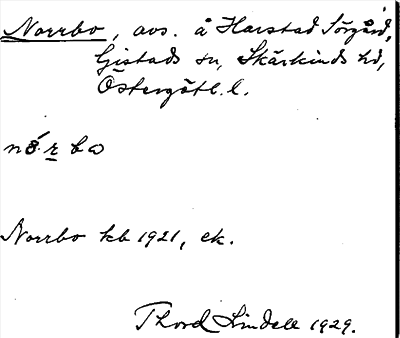 Norrbo, avs. å Harstad Sörgård,
Gistads sn, Skärkinds hd,
Östergötl. l.
Norrbo kb 1921, ek.
Thord Lindell 1929.